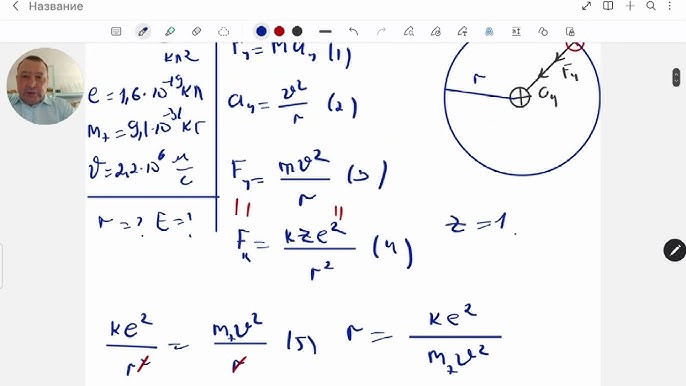 Название
Кл²
e = 1,6 · 10⁻¹⁹ Кл
m_э = 9,1 · 10⁻³¹ кг
υ = 2,2 · 10⁶ м/с
r = ? E = ?
F_y = m a_y (1)
a_y = υ²/r (2)
F_y = mυ²/r (3)
F_к = kze²/r² (4)
z = 1.
r
F_y
a_y
ke²/r² = m_э υ²/r (5) r = ke²/(m_э υ²)